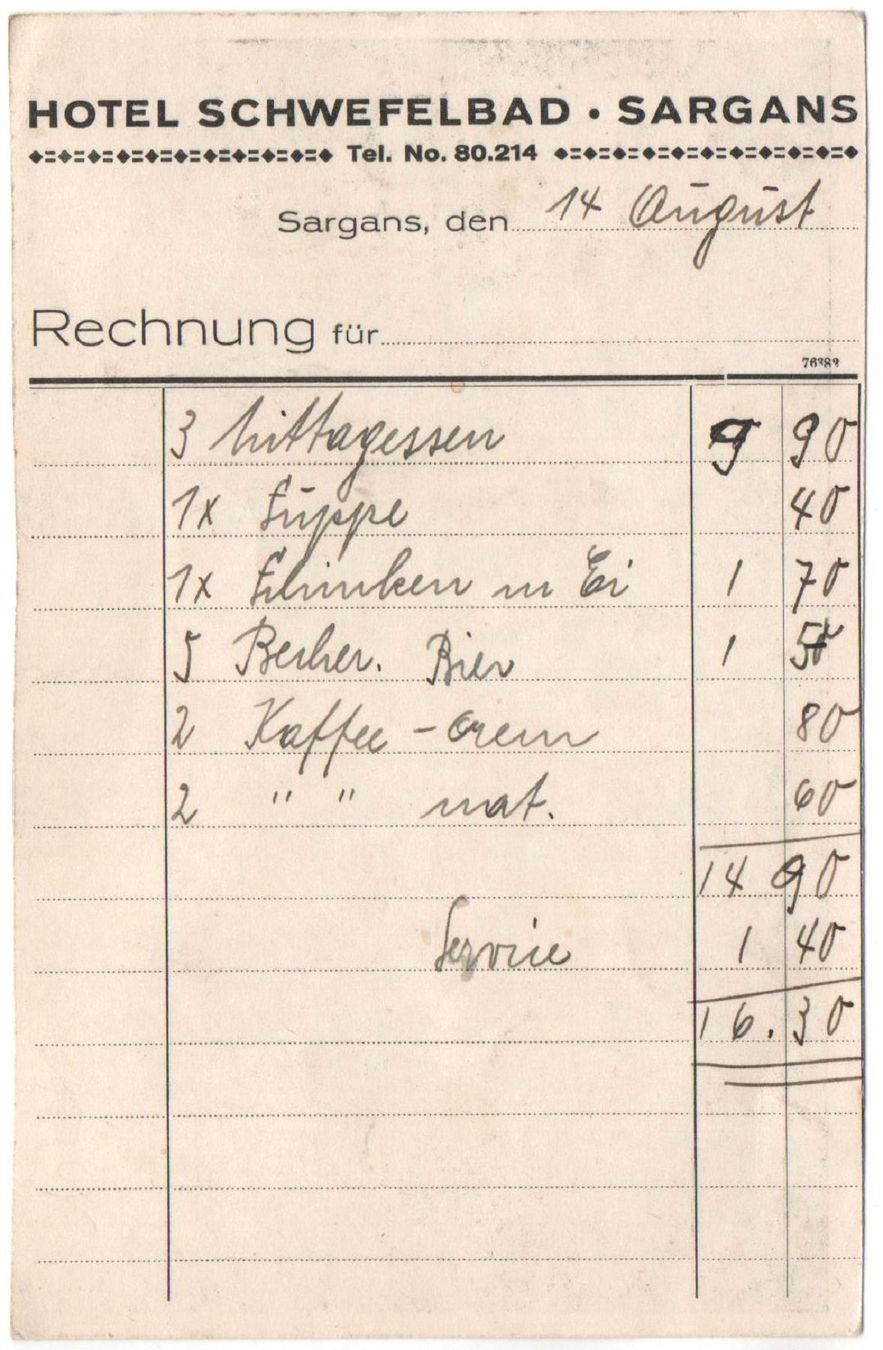 HOTEL SCHWEFELBAD • SARGANS
Tel. No. 80.214
Sargans, den 14 August
Rechnung für
3 Mittagessen 9 90
1x Suppe 40
1x Schinken m Ei 1 70
5 Becher. Bier 1 50
2 Kaffee - Crem 80
2 " " nat. 60
14 90
Service 1 40
16.30